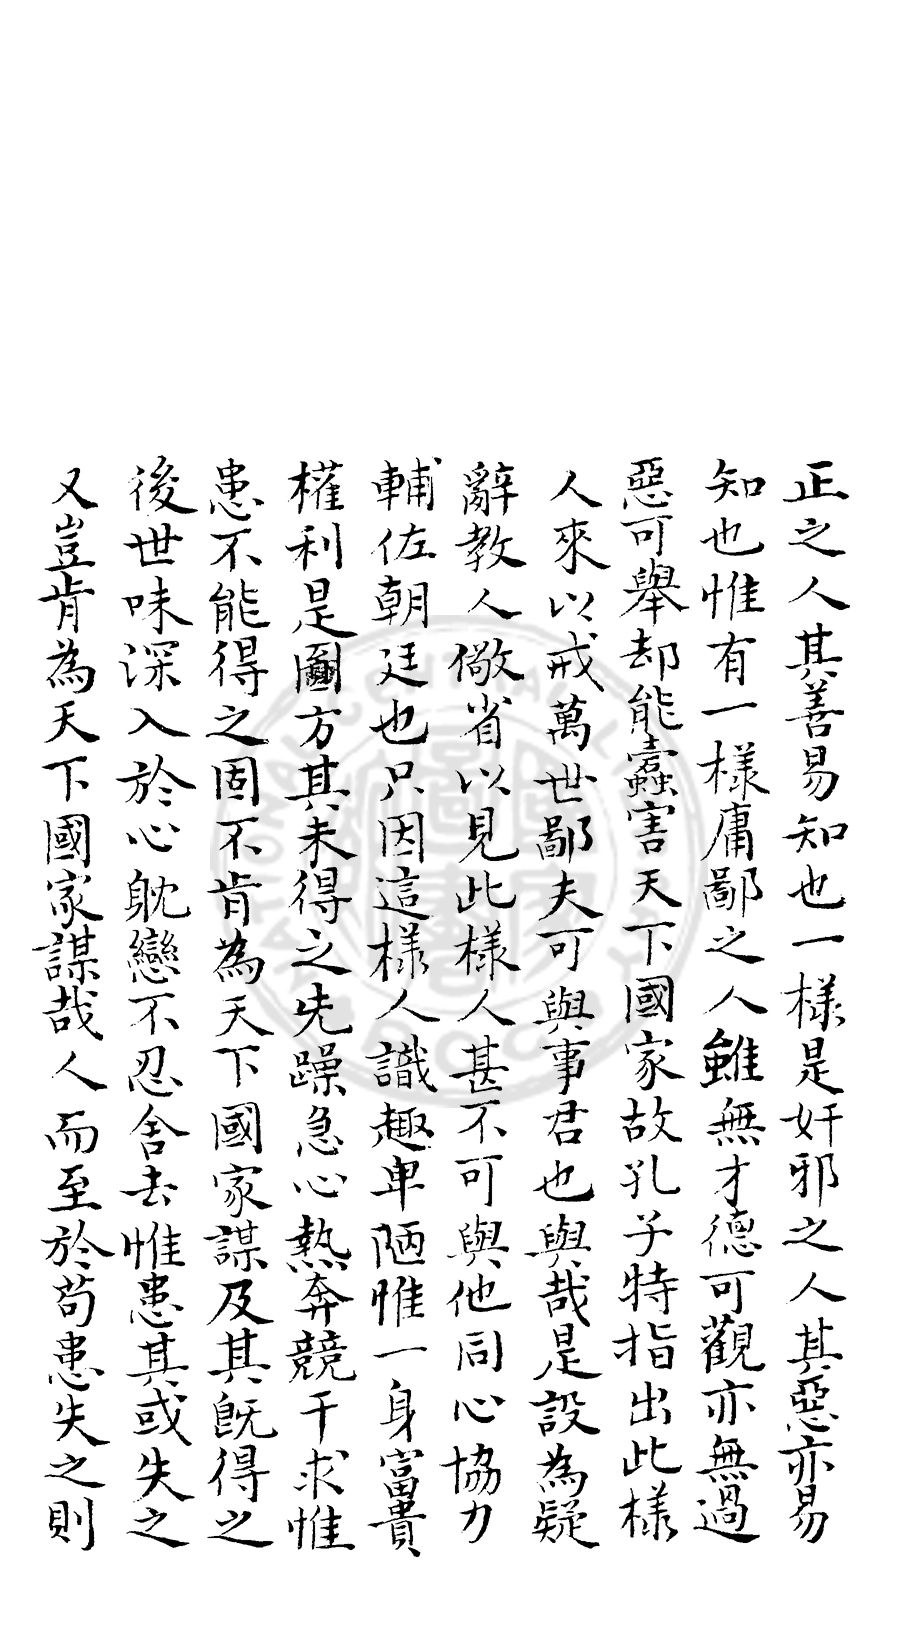 正之人其善易知也一樣是奸邪之人其惡亦易
知也惟有一樣庸鄙之人雖無才德可觀亦無過
惡可舉却能蠹害天下國家故孔子特指出此樣
人來以戒萬世鄙夫可與事君也與哉是設為疑
辭教人儆省以見此樣人甚不可與他同心協力
輔佐朝廷也只因這樣人識趣卑陋惟一身富貴
權利是圖方其未得之先躁急心熱奔競干求惟
患不能得之固不肯為天下國家謀及其既得之
後世味深入於心躭戀不忍舍去惟患其或失之
又豈肯為天下國家謀哉人而至於苟患失之則